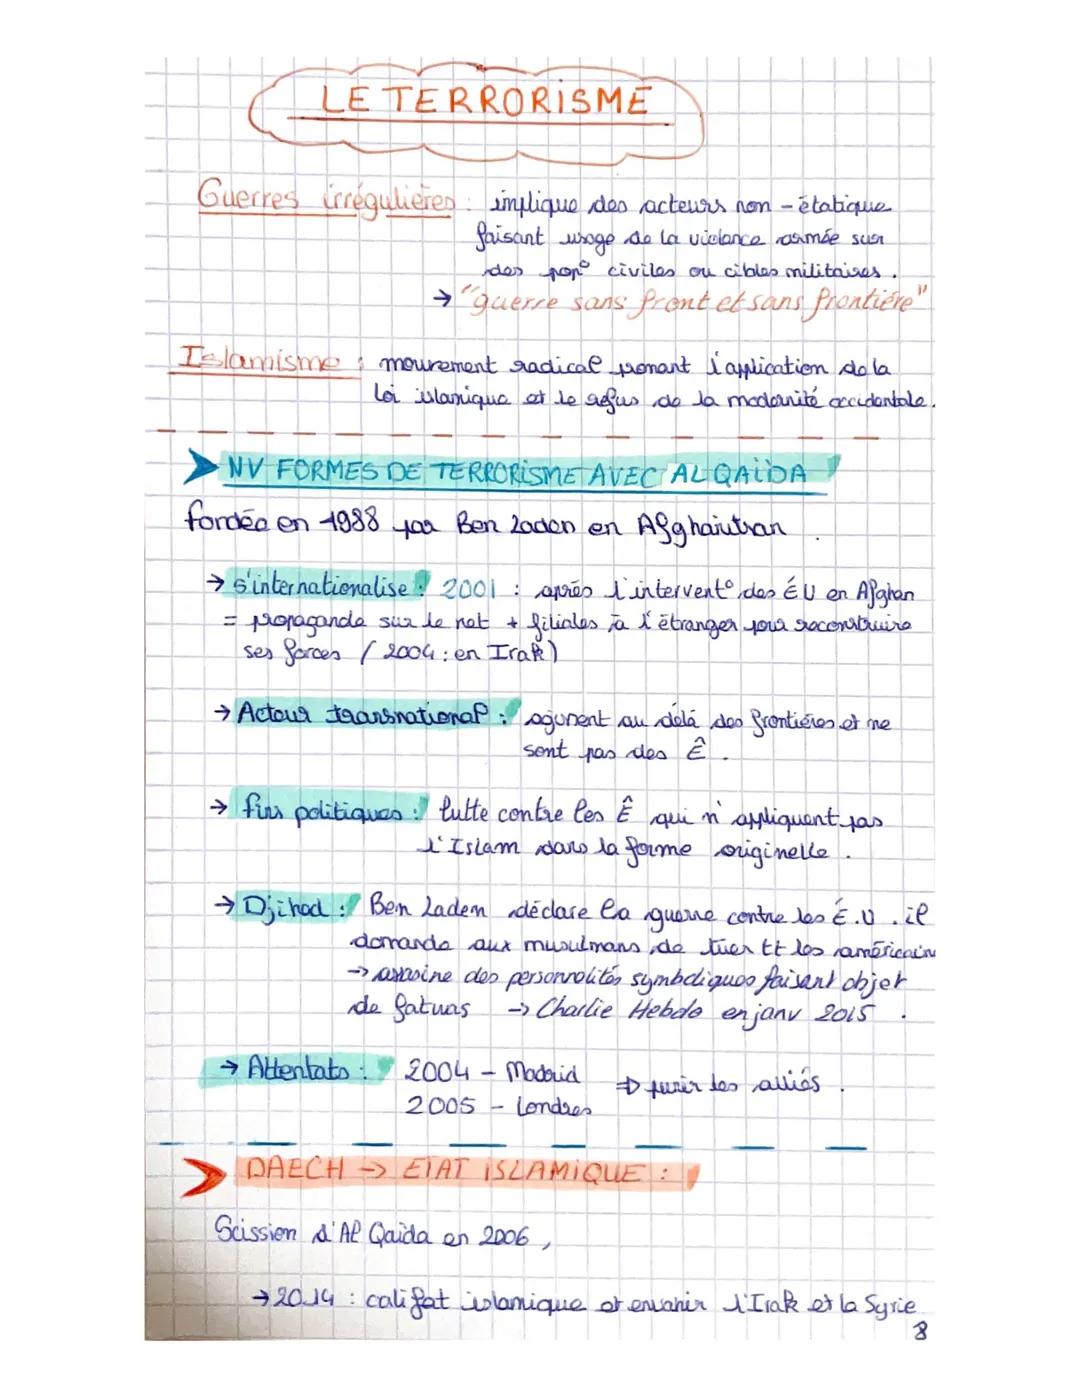 LE TERRORISME
Guerres irrégulières : implique des acteurs non-étatique
faisant usage de la violence armée sur
des pop° civiles ou cibles militaires.
→ "guerre sans front et sans frontière"
Islamisme : mouvement radical pronant l'application de la
loi islamique et le refus de la modernité occidentale.
NV FORMES DE TERRORISME AVEC AL QAÏDA
fondée en 1988 par Ben Laden en Afghanistan.
→ s'internationalise : 2001 : après l'intervent° des ÉU en Afghan
= propagande sur le net + filiales à l'étranger pour reconstruire
ses forces (2004 : en Irak)
→ Acteur transnational : agissent au délà des frontières et ne
sont pas des Ê.
→ fins politiques : lutte contre les Ê qui n'appliquent pas
l'Islam dans la forme originelle.
→ Djihad : Ben Laden déclare la guerre contre les É.U. il
demande aux musulmans de tuer tt les américains
→ assasine des personnalités symboliques faisant objet
de fatwas → Charlie Hebdo en janv 2015.
→ Attentats : 2004 - Madrid ⇒ punir les alliés.
2005 - Londres
DAECH → ETAT ISLAMIQUE :
Scission d'Al Qaïda en 2006,
→ 2014 : califat islamique et envahir l'Irak et la Syrie
8